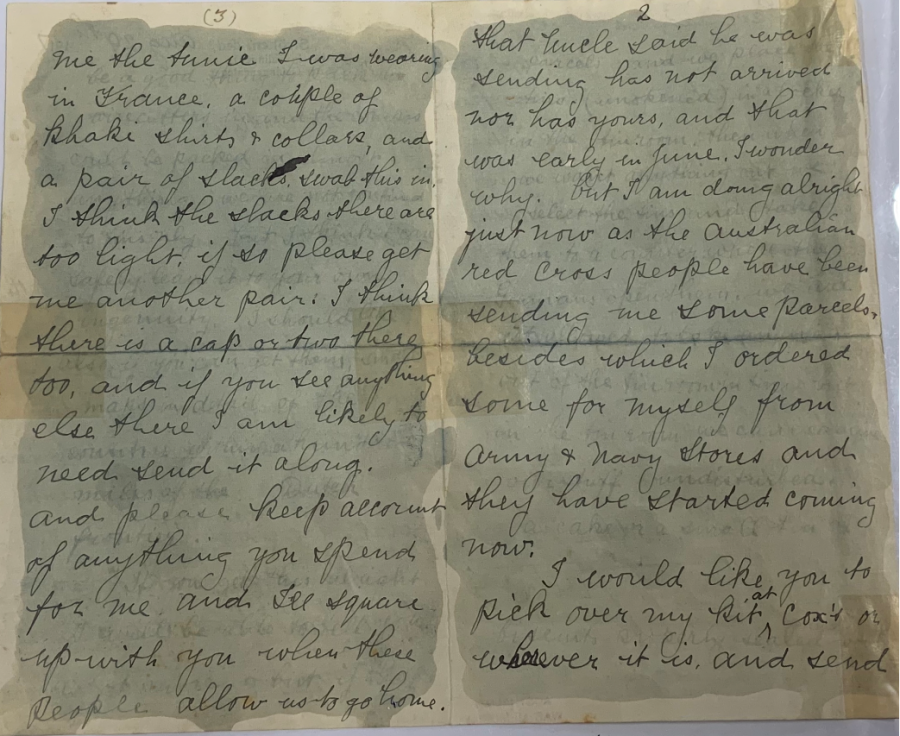 2
that Uncle said he was
sending has not arrived
nor has yours, and that
was early in June. I wonder
why. But I am doing alright
just now as the Australian
red cross people have been
sending me some parcels.
besides which I ordered
some for myself from
Army & Navy Stores and
they have started coming
now.
I would like you to
pick over my kit at Cox's or
wherever it is. and send
(3)
me the tunic I was wearing
in France, a couple of
khaki shirts & collars, and
a pair of slacks, swab this in.
I think the slacks there are
too light, if so please get
me another pair. I think
there is a cap or two there
too, and if you see anything
else there I am likely to
need send it along.
and please keep account
of anything you spend
for me and I'll square
up with you when these
people allow us to go home.